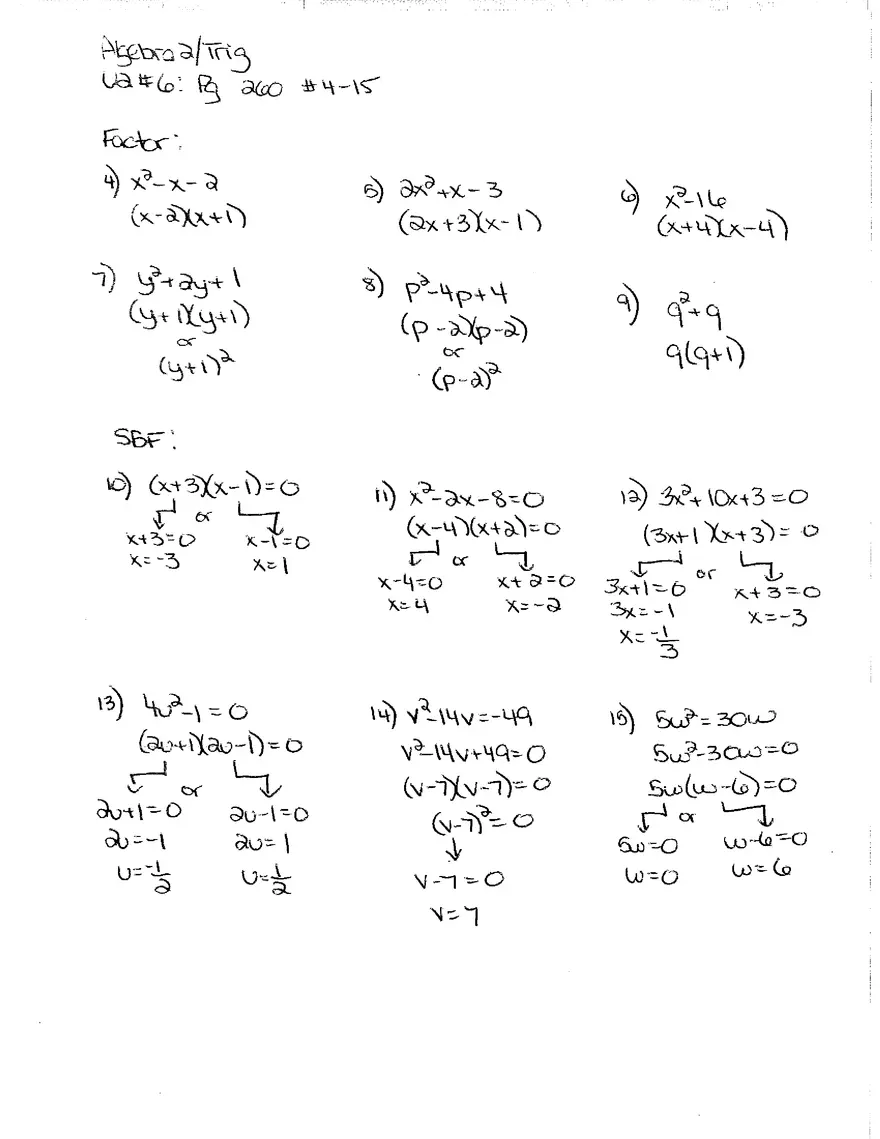 Algebra 2/Trig
U2#6: Pg 260 #4-15
Factor:
4) x²-x-2
(x-2)(x+1)
5) 2x²+x-3
(2x+3)(x-1)
6) x²-16
(x+4)(x-4)
7) y²+2y+1
(y+1)(y+1)
or
(y+1)²
8) p²-4p+4
(p-2)(p-2)
or
(p-2)²
9) q²+q
q(q+1)
SBF:
10) (x+3)(x-1)=0
or
x+3=0 x-1=0
x=-3 x=1
11) x²-2x-8=0
(x-4)(x+2)=0
or
x-4=0 x+2=0
x=4 x=-2
12) 3x²+10x+3=0
(3x+1)(x+3)=0
or
3x+1=0 x+3=0
3x=-1 x=-3
x=-1/3
13) 4u²-1=0
(2u+1)(2u-1)=0
or
2u+1=0 2u-1=0
2u=-1 2u=1
u=-1/2 u=1/2
14) v²-14v=-49
v²-14v+49=0
(v-7)(v-7)=0
(v-7)²=0
v-7=0
v=7
15) 5w²=30w
5w²-30w=0
5w(w-6)=0
or
5w=0 w-6=0
w=0 w=6